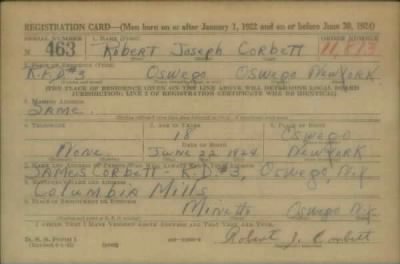 REGISTRATION CARD—(Men born on or after January 1, 1922 and on or before June 30, 1924)
SERIAL NUMBER 1. NAME (Print) ORDER NUMBER
N 463 Robert Joseph Corbett 11,813
2. PLACE OF RESIDENCE (Print)
R.F.D#3 Oswego Oswego New York
[THE PLACE OF RESIDENCE GIVEN ON THE LINE ABOVE WILL DETERMINE LOCAL BOARD
JURISDICTION; LINE 2 OF REGISTRATION CERTIFICATE WILL BE IDENTICAL]
3. MAILING ADDRESS
SAME
4. TELEPHONE 5. AGE IN YEARS 6. PLACE OF BIRTH
18 Oswego
DATE OF BIRTH
None JUNE 22 1924 New York
7. NAME AND ADDRESS OF PERSON WHO WILL ALWAYS KNOW YOUR ADDRESS
JAMES CORBETT - R.D.#3, Oswego, N.Y.
8. EMPLOYER'S NAME AND ADDRESS
Columbia Mills
9. PLACE OF EMPLOYMENT OR BUSINESS
Minetto Oswego N.Y.
I AFFIRM THAT I HAVE VERIFIED ABOVE ANSWERS AND THAT THEY ARE TRUE.
D. S. S. Form 1
Robert J. Corbett